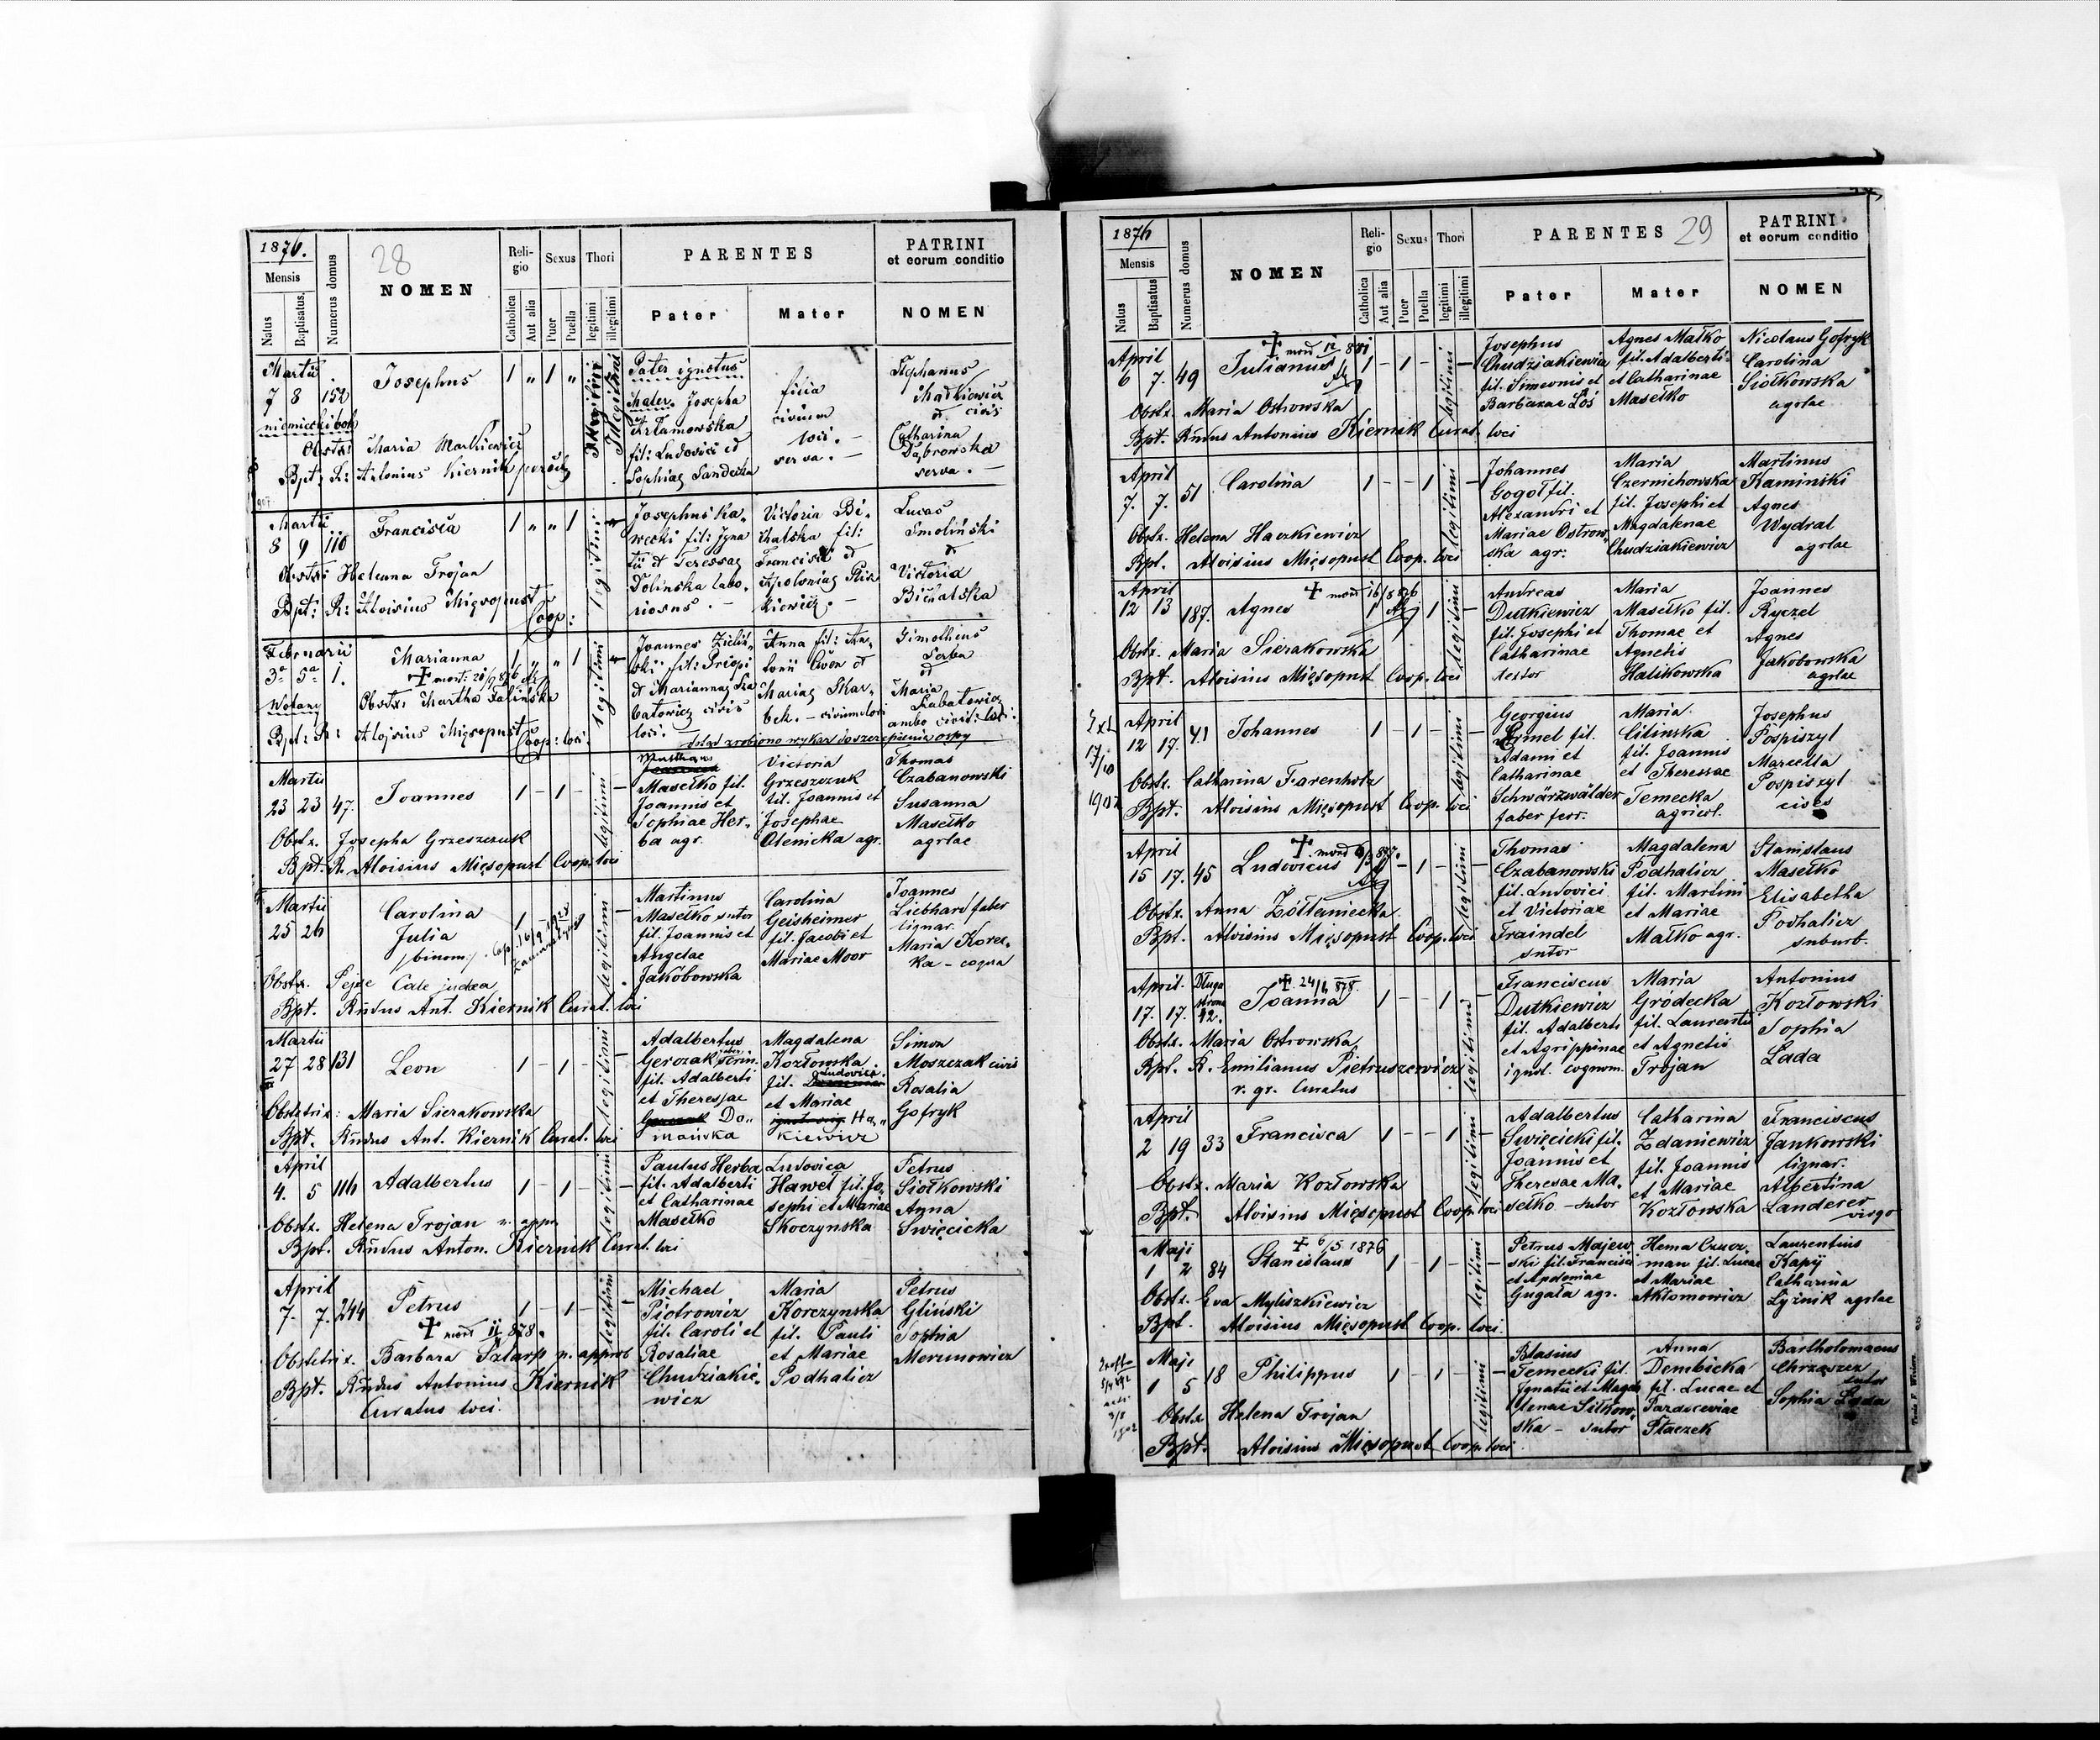 1876.
28
Mensis
Natus
Baptisatus
Numerus domus
NOMEN
Religio
Catholica
Aut alia
Sexus
Puer
Puella
Thori
legitimi
illegitimi
PARENTES
Pater
Mater
PATRINI
et eorum conditio
NOMEN
Martii
7 8 152
Josephus
1 " 1 "
Illegitimi
Pater ignotus.
Mater. Josepha
fil: Ludovici et
Sophiae
filia
civium
loci. —
serva. —
Stephanus
et civis
Catharina
Dąbrowska
serva. —
Obstx: Maria Markiewicz
Bpt: R: Antonius Kiernik
Martii
8 9 110
Francisca
1 " " 1
legitimi
Josephus Ka-
wecki fil: Igna
tii et Teressae
Dolinska labo-
riosus. —
Victoria Bi-
fil:
Francisci et
Apoloniae
kiewicz. —
Lucas
Smoliński
et
Victoria
Obstx: Helenna Trojan
Bpt: R: Aloisius Mięsopust
Coop:
Februarii
3a 5a 1.
Marianna
1 " " 1
legitimi
Wolany
Joannes
et Mariannae
civis
loci.
Anna fil: An-
tonii et
Mariae
bek. — civium loci
Timotheus
Serba
et
Maria
ambo cives loci.
Obstx: Martha
Bpt: R: Aloysius Mięsopust
Coop: loci.
Dotąd zrobiono wykaz do szczepienia ospy
Martii
23 23 47.
Joannes
1 - 1 -
legitimi
Masełko fil.
Joannis et
Sophiae Her-
ba agr.
Victoria
Grzeszczuk
fil. Joannis et
Josephae
Olenicka agr.
Thomas
Czabanowski
Susanna
Masełko
agrlae
Obstx. Josepha Grzeszczuk
Bpt. R. Aloisius Mięsopust Coop. loci
Martii
25 26
Carolina
Julia
(binom.)
legitimi
Martinus
Masełko sutor
fil. Joannis et
Angelae
Jakóbowska
Carolina
Geisheimer
fil. Jacobi et
Mariae Moor
Joannes
Liebhard faber
lignar.
Maria Korec-
ka — coqua
Obstx. Pejse Cale judaea
Bpt. Rndus Ant. Kiernik Curat. loci
Martii
27 28 131
Leon
1 - 1 -
legitimi
Adalbertus
Gerczak
fil. Adalberti
et Theresiae
Do-
mańska
Magdalena
Kozłowska
fil. Ludovici
et Mariae
Ha-
kiewicz
Simon
Moszczak civis
Rosalia
Gofryk
Obstetrix: Maria Sierakowska
Bpt. Rndus Ant. Kiernik Curat. loci
April
4. 5 116
Adalbertus
1 - 1 -
legitimi
Paulus Herba
fil. Adalberti
et Catharinae
Masełko
Ludovica
Haweł fil. Jo-
sephi et Mariae
Skoczynska
Petrus
Siołkowski
Anna
Swięcicka
Obstx. Helena Trojan n. appr.
Bpt. Rndus Anton. Kiernik Curat. loci
April
7. 7. 244
Petrus
1 - 1 -
legitimi
Michael
Piotrowicz
fil. Caroli et
Rosaliae
Chudziakie-
wicz
Maria
Korczynska
fil. Pauli
et Mariae
Podhalicz
Petrus
Gliński
Sophia
Merunowicz
Obstetrix. Barbara Szlarp n. approb
Bpt. Rndus Antonius Kiernik
Curatus loci.
1876
29
Mensis
Natus
Baptisatus
Numerus domus
NOMEN
Religio
Catholica
Aut alia
Sexus
Puer
Puella
Thori
legitimi
illegitimi
PARENTES
Pater
Mater
PATRINI
et eorum conditio
NOMEN
April
6 7. 49
Julianus
1 - 1 -
legitimi
Josephus
Chudziakiewicz
fil. Simeonis et
Barbarae Łoś
Agnes Małko
fil. Adalberti
et Catharinae
Masełko
Nicolaus Gofryk
Carolina
Siołkowska
agrlae
Obstx. Maria Ostrowska
Bpt. Rndus Antonius Kiernik Curat. loci
April
7. 7. 51
Carolina
1 - - 1
legitimi
Johannes
Gogol fil.
Alexandri et
Mariae Ostrow-
ska agr:
Maria
Czernichowska
fil. Josephi et
Magdalenae
Chudziakiewicz
Martinus
Kaminski
Agnes
Wydrat
agrlae
Obstx. Helena Haczkiewicz
Bpt. Aloisius Mięsopust Coop. loci
April
12 13 187.
Agnes
legitimi
Andreas
Dutkiewicz
fil. Josephi et
Catharinae
Maria
Masełko fil.
Thomae et
Agnetis
Halikowska
Joannes
Ryczel
Agnes
Jakobowska
agrlae
Obstx. Maria Sierakowska
Bpt. Aloisius Mięsopust Coop. loci
17/10
1902
April
12 17. 41
Johannes
1 - 1 -
legitimi
Georgius
fil.
Adami et
Catharinae
Schwärzwälder
faber ferr.
Maria
Cilinska
fil. Joannis
et Theressae
Temecka
agricol.
Josephus
Pospiszyl
Marcella
Pospiszyl
cives
Obstx. Catharina Farenholz
Bpt. Aloisius Mięsopust Coop. loci
April
15 17. 45
Ludovicus
legitimi
Thomas
Czabanowski
fil. Ludovici
et Victoriae
Traindel
sutor
Magdalena
Podhalicz
fil. Martini
et Mariae
Małko agr.
Stanislaus
Masełko
Elisabetha
Podhalicz
suburb.
Obstx. Anna Żółtaniecka
Bpt. Aloisius Mięsopust Coop. loci
April. Długa strona
17. 17. 42.
Joanna
1 - - 1
legitimi
Franciscus
Dutkiewicz
fil. Adalberti
et Agrippinae
ignot. cognom.
Maria
Gródecka
fil. Laurentii
et Agnetis
Trojan
Antonius
Kozłowski
Sophia
Łada
Obstx. Maria Ostrowska
Bpt. R. Emilianus Pietruszewicz
r. gr. Curatus
April
2 19 33
Francisca
1 - - 1
legitimi
Adalbertus
Swięcicki fil.
Joannis et
Theresae Ma-
sełko — sutor
Catharina
Zdaniewicz
fil. Joannis
et Mariae
Kozłowska
Franciscus
Jankowski
lignar.
Albertina
Landerer
virgo
Obstx. Maria Kozłowska
Bpt. Aloisius Mięsopust Coop. loci
Maji
1 2 84
6/5 1876
Stanislaus
1 - 1 -
legitimi
Petrus Majew-
ski fil. Francisci
et Apoloniae
Gugała agr.
man fil. Lucae
et Mariae
Akłomowicz
Laurentius
Kapij
Catharina
Lyżnik agrlae
Obstx. Eva Myliszkiewicz
Bpt. Aloisius Mięsopust Coop. loci.
Maji
1 5 18
Philippus
1 - 1 -
legitimi
Blasius
Temecki fil.
Ignatii et Magda
lenae
ska — sutor
Anna
Dembicka
fil. Lucae et
Ptaczek
Bartholomaeus
Chrząszcz
sutor
Sophia Łada
Obstx Helena Trojan
Bpt. Aloisius Mięsopust Coop. loci